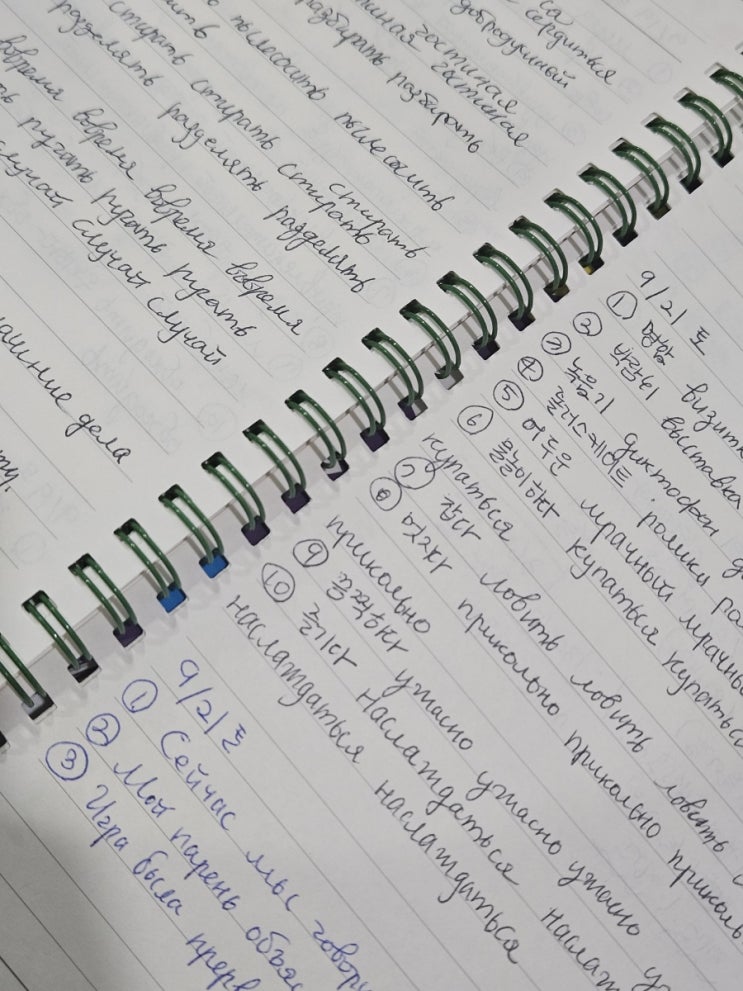 сердиться
добродушной
гостиная
гостиная
разбирать разбирать
пылесосить пылесосить
стирать стирать стирать
стирать
разделять разделять разделять
вовремя вовремя вовремя вовремя
ругать ругать ругать
случай случай случай
дела
9/21 토
① 명함 визитк
② 박람회 выставка
③ 녹음기 диктофон д
④ 롤러스케이트 ролики ро
⑤ 어두운 мрачный мрачны
⑥ 물놀이하다 купаться купаться
купаться
⑦ 잡다 ловить ловить ловить
⑧ 멋지다 прикольно прикольно приколь
прикольно
⑨ 끔찍하다 ужасно ужасно ужасно у
⑩ 즐기다 наслаждаться наслаж
наслаждаться наслаждаться
9/21 토
① Сейчас мы говор
② Мой парень объяс
③ Игра была прерв